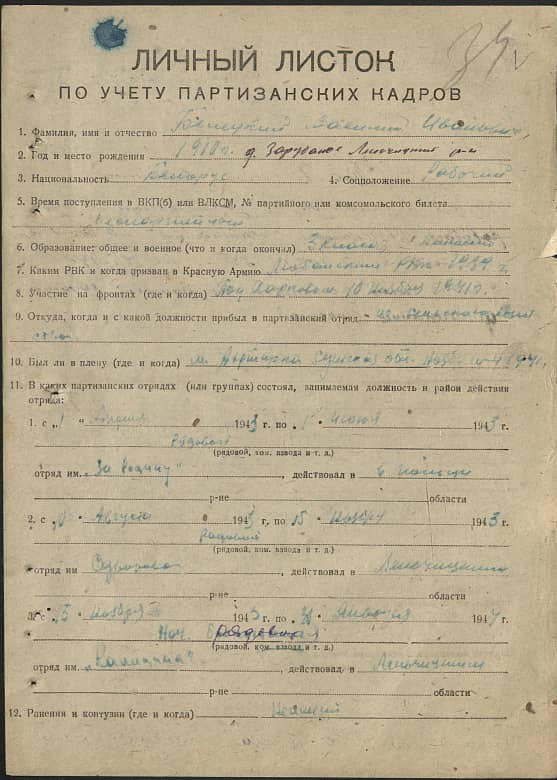 ЛИЧНЫЙ ЛИСТОК
ПО УЧЕТУ ПАРТИЗАНСКИХ КАДРОВ
1. Фамилия, имя и отчество Иванович
2. Год и место рождения 1918 г. д. Лельчицкий р-н
3. Национальность Беларус 4. Соцположение Рабочий
5. Время поступления в ВКП(б) или ВЛКСМ, № партийного или комсомольского билета
беспартийный
6. Образование: общее и военное (что и когда окончил) 3 класса
7. Каким РВК и когда призван в Красную Армию РВК 1939 г.
8. Участие на фронтах (где и когда) Под Харьковом 10 ноября 1941 г.
9. Откуда, когда и с какой должности прибыл в партизанский отряд
10. Был ли в плену (где и когда) м. Ахтырка Сумская обл. ноябрь 1941 г.
11. В каких партизанских отрядах (или группах) состоял, занимаемая должность и район действия
отряда:
1. с „1" Апреля 1943 г. по 1 Июня 1943 г.
рядовой
(рядовой, ком. взвода и т. д.)
отряд им. „За Родину", действовал в
р-не области
2. с Августа 1943 г. по 15 Ноября 1943 г.
рядовой
(рядовой, ком. взвода и т. д.)
отряд им. Суворова, действовал в Лельчицким
р-не области
3. с 15 Ноября 1943 г. по Января 1944 г.
Нач. рядовой
(рядовой, ком. взвода и т. д.)
отряд им. „Калинина", действовал в Лельчицким
р-не области
12. Ранения и контузии (где и когда)